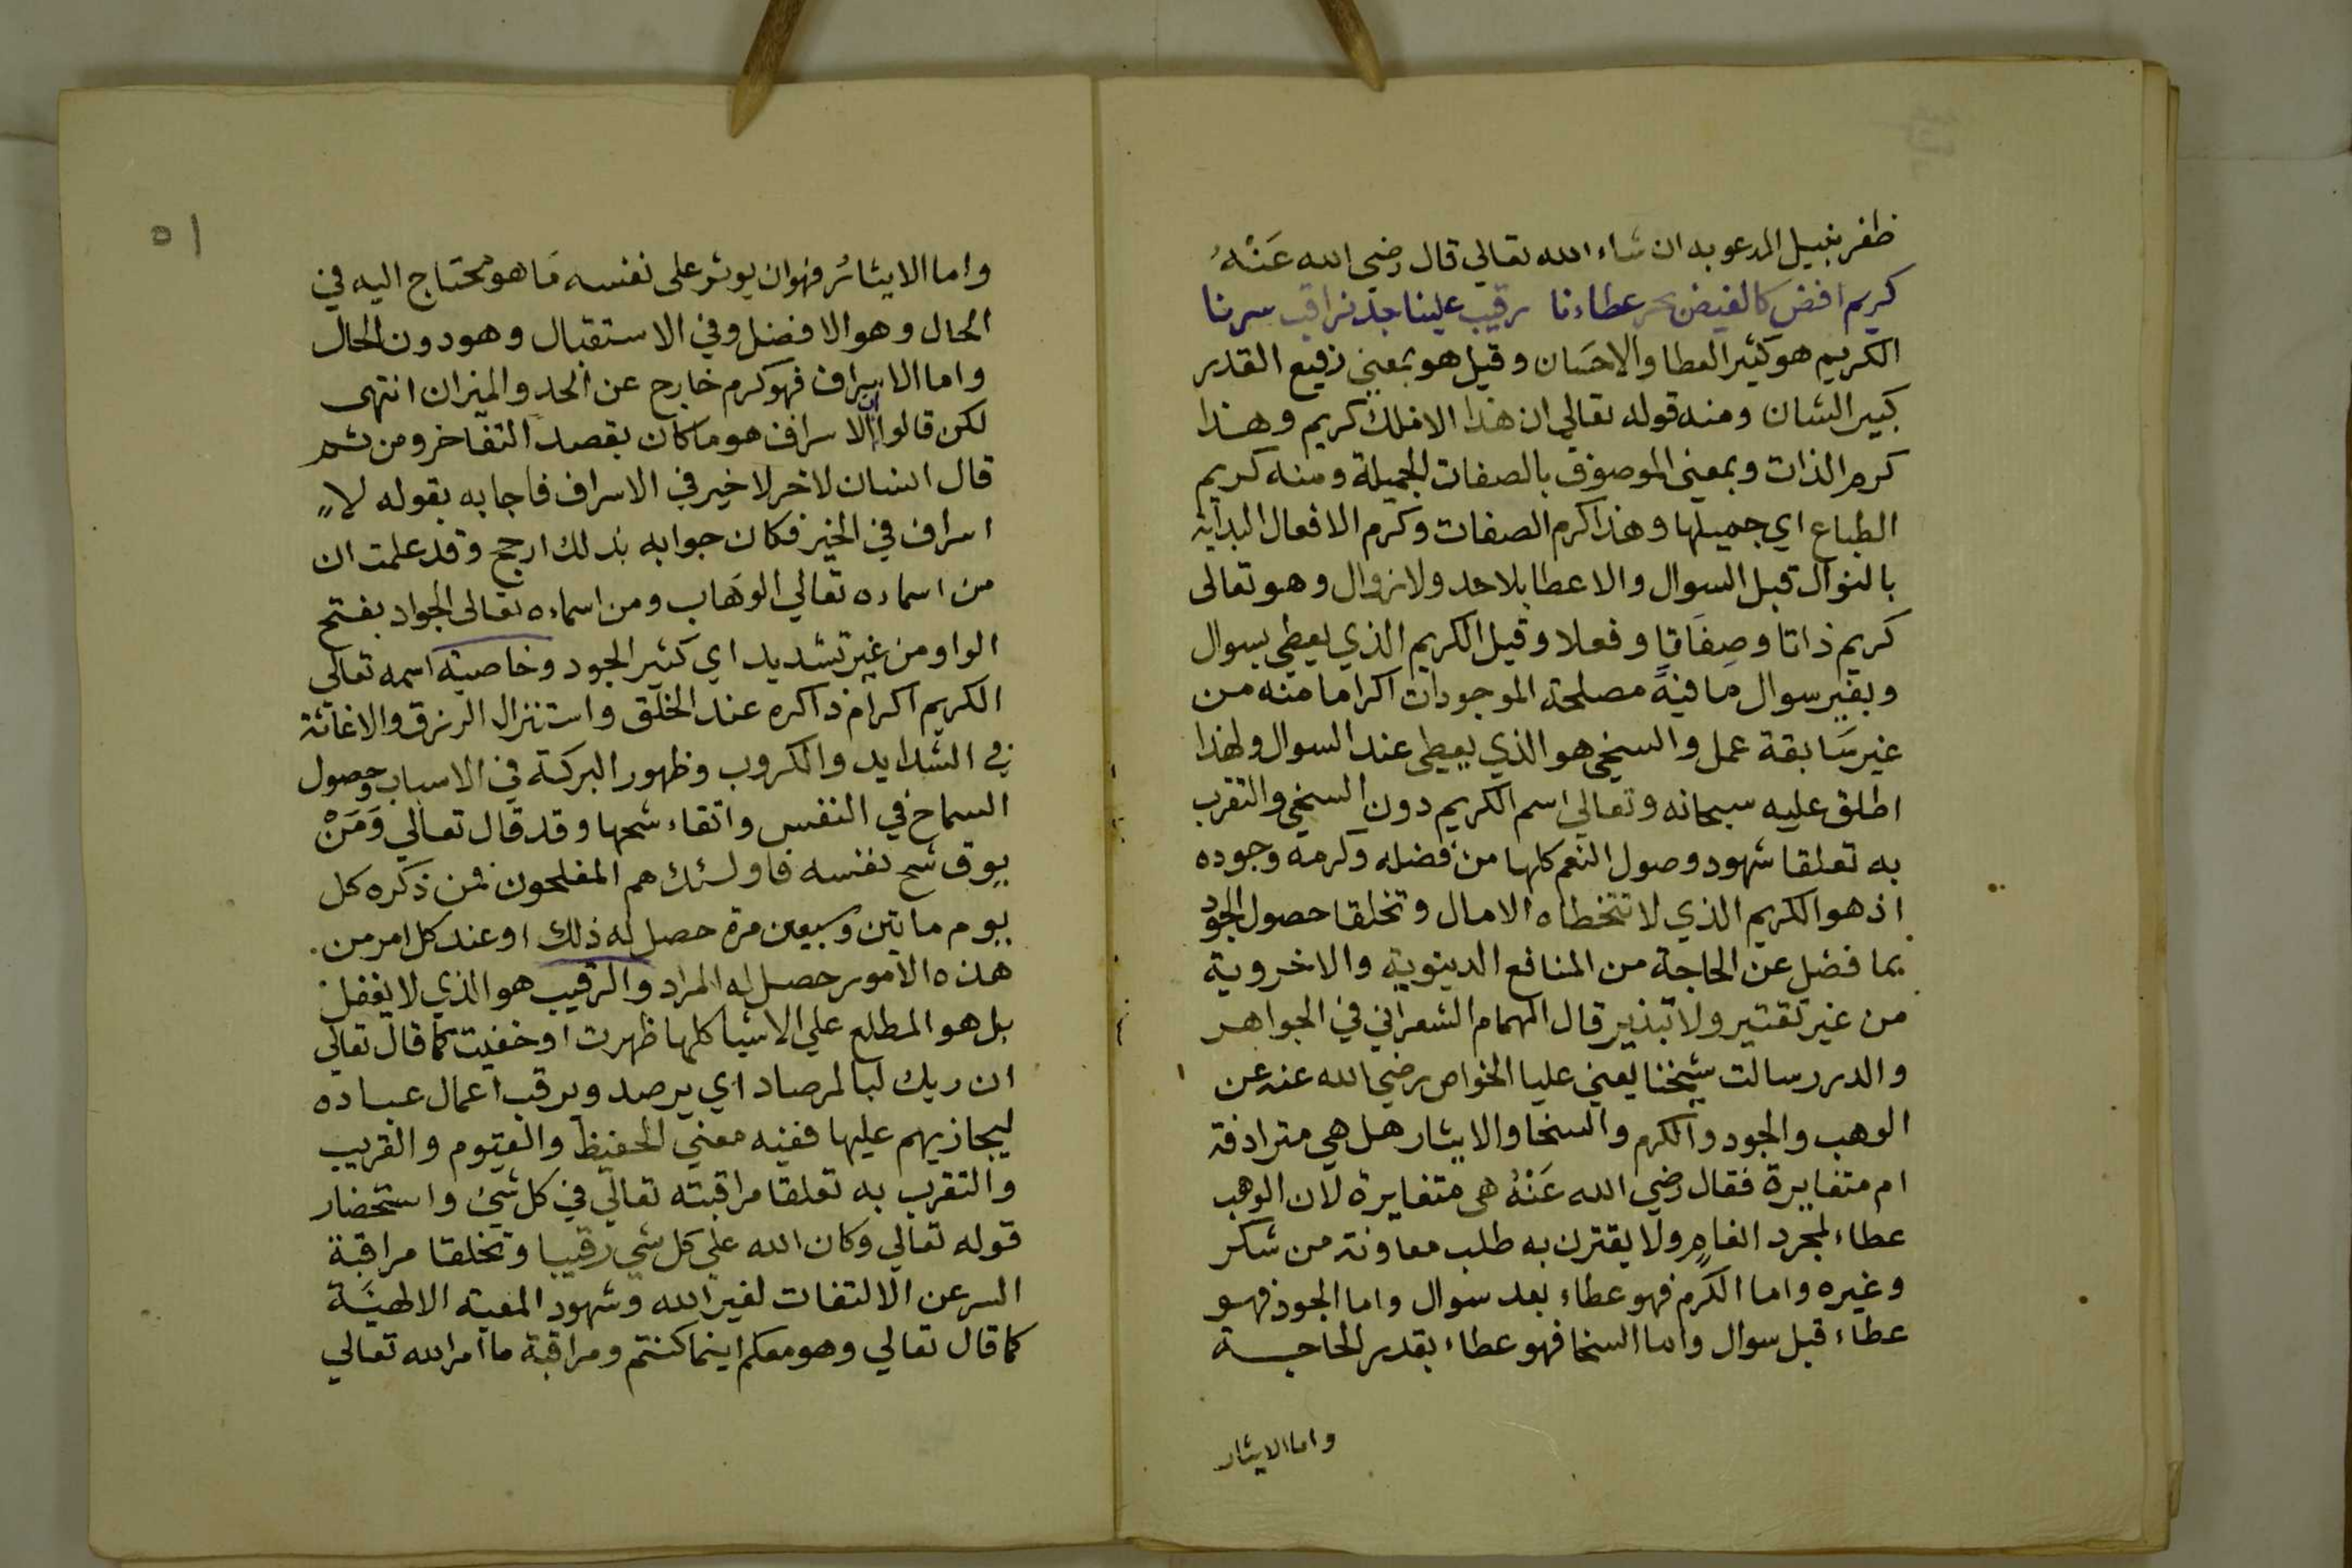 ظفر بنيل المدعو به ان شاء الله تعالي قال رضي الله عَنْهُ
كريم افض كالفيض بحر عطاءنا رقيب علينا جد نراقب سرنا
الكريم هو كثير العطا والاحسَان وقيل هو بمعني رفيع القدر
كبير الشان ومنه قوله تعالي ان هذا الا ملك كريم وهذا
كرم الذات وبمعنى الموصوف بالصفات الجميلة ومنه كريم
الطباع اي جميلها وهذا كرم الصفات وكرم الافعال البداية
بالنوال قبل السوال والاعطا بلا حد ولا زوال وهو تعالى
كريم ذاتا وصفَاتا وفعلا وقيل الكريم الذي يعطي بسوال
وبغير سوال ما فيه مصلحة الموجودات اكراما منه من
غير سَابقة عمل والسخي هو الذي يعطى عند السوال ولهذا
اطلق عليه سبحانه وتعالي اسم الكريم دون السخي والتقرب
به تعلقا شهود وصول النعم كلها من فضله وكرمه وجوده
اذ هو الكريم الذي لا تتخطاه الامال وتخلقا حصول الجود
بما فضل عن الحاجة من المنافع الدينوية والاخروية
من غير تقتير ولا تبذير قال الهمام الشعراني في الجواهر
والدرر سالت شيخنا يعني عليا الخواص رضي الله عنه عن
الوهب والجود والكرم والسخا والايثار هل هي مترادفة
ام متغايرة فقال رضي الله عَنْهُ هى متغايرة لان الوهب
عطاء لمجرد انعامٍ ولا يقترن به طلب معاونة من شكر
وغيره واما الكرم فهو عطاء بعد سوال واما الجود فهو
عطاء قبل سوال واما السخا فهو عطاء بقدر الحاجة
واما الايثار
٥١
واما الايثار فهو ان يوثر على نفسه مَا هو محتاج اليه في
الحال وهو الافضل وفي الاستقبال وهو دون الحال
واما الاسراف فهو كرم خارج عن الحد والميزان انتهى
لكن قالوا ان الاسراف هو ما كان بقصد التفاخر ومن ثم
قال انسان لاخر لا خير في الاسراف فاجابه بقوله لا
اسراف في الخير فكان جوابه بذلك ارجح وقد علمت ان
من اسماءه تعالي الوَهاب ومن اسماءه تعالى الجواد بفتح
الواو من غير تشديد اي كثير الجود وخاصية اسمه تعالي
الكريم اكرام ذاكره عند الخلق واستنزال الرزق والاغاثة
في الشدايد والكروب وظهور البركة في الاسباب وحصول
السماح في النفس واتقاء شحها وقد قال تعالي وَمَنْ
يوق شح نفسه فاولئك هم المفلحون فمن ذكره كل
يوم ماتين وسبعين مرة حصل له ذلك او عند كل امر من
هذه الامور حصل له المراد والرقيب هو الذي لا يغفل
بل هو المطلع علي الاشيا كلها ظهرت او خفيت كما قال تعالي
ان ربك لبالمرصاد اي يرصد ويرقب اعمال عباده
ليجازيهم عليها ففيه معني الحفيظ والقيوم والقريب
والتقرب به تعلقا مراقبته تعالي في كل شئ واستحضار
قوله تعالي وكان الله علي كل شي رقيبا وتخلقا مراقبة
السر عن الالتفات لغير الله وشهود المعية الالهيَّة
كما قال تعالي وهو معكم اينما كنتم ومراقبة ما امر الله تعالي